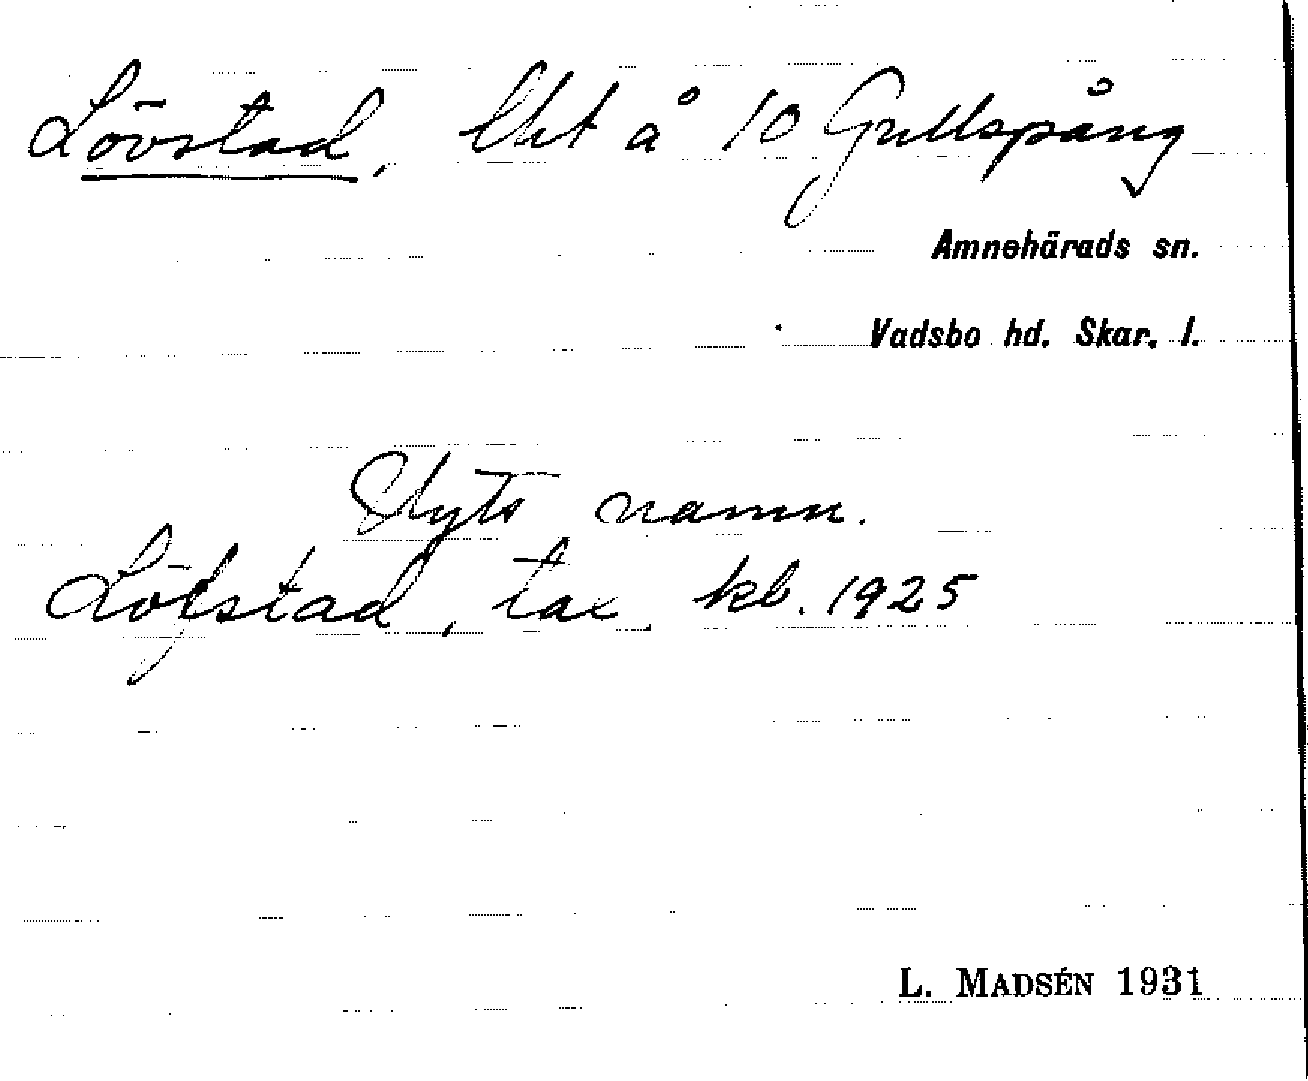 Lövstad, lht å 10 Gullspång
Amnehärads sn.
Vadsbo hd. Skar. l.
Skyts namn.
Löfstad, tax. kb. 1925
L. MADSÉN 1931